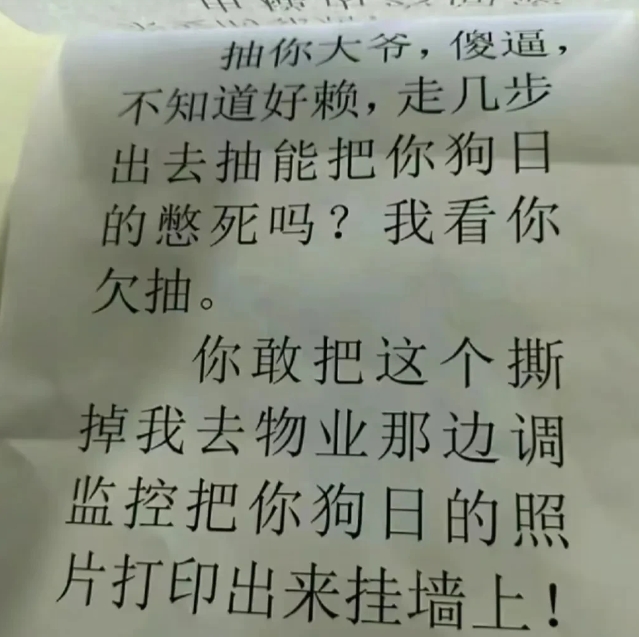 抽你大爷，傻逼，
不知道好赖，走几步
出去抽能把你狗日
的憋死吗？我看你
欠抽。
你敢把这个撕
掉我去物业那边调
监控把你狗日的照
片打印出来挂墙上！